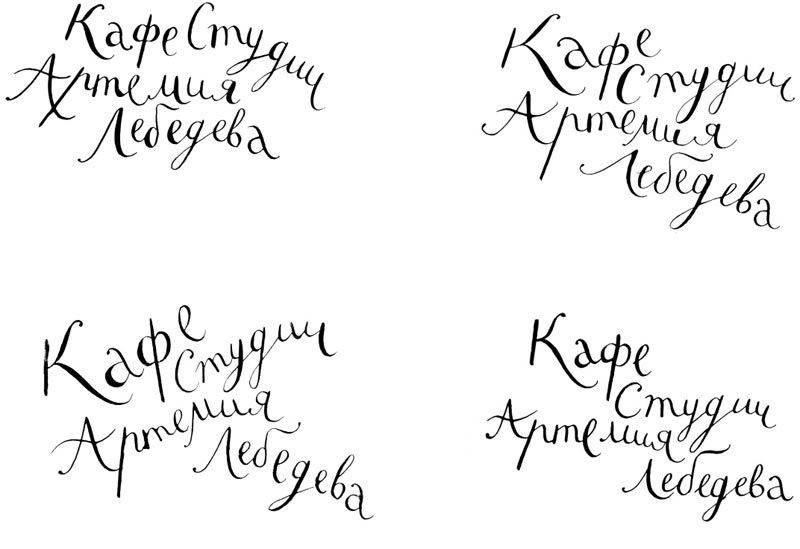 Кафе Студии
Артемия
Лебедева
Кафе
Студии
Артемия
Лебедева
Кафе
Студии
Артемия
Лебедева
Кафе
Студии
Артемия
Лебедева